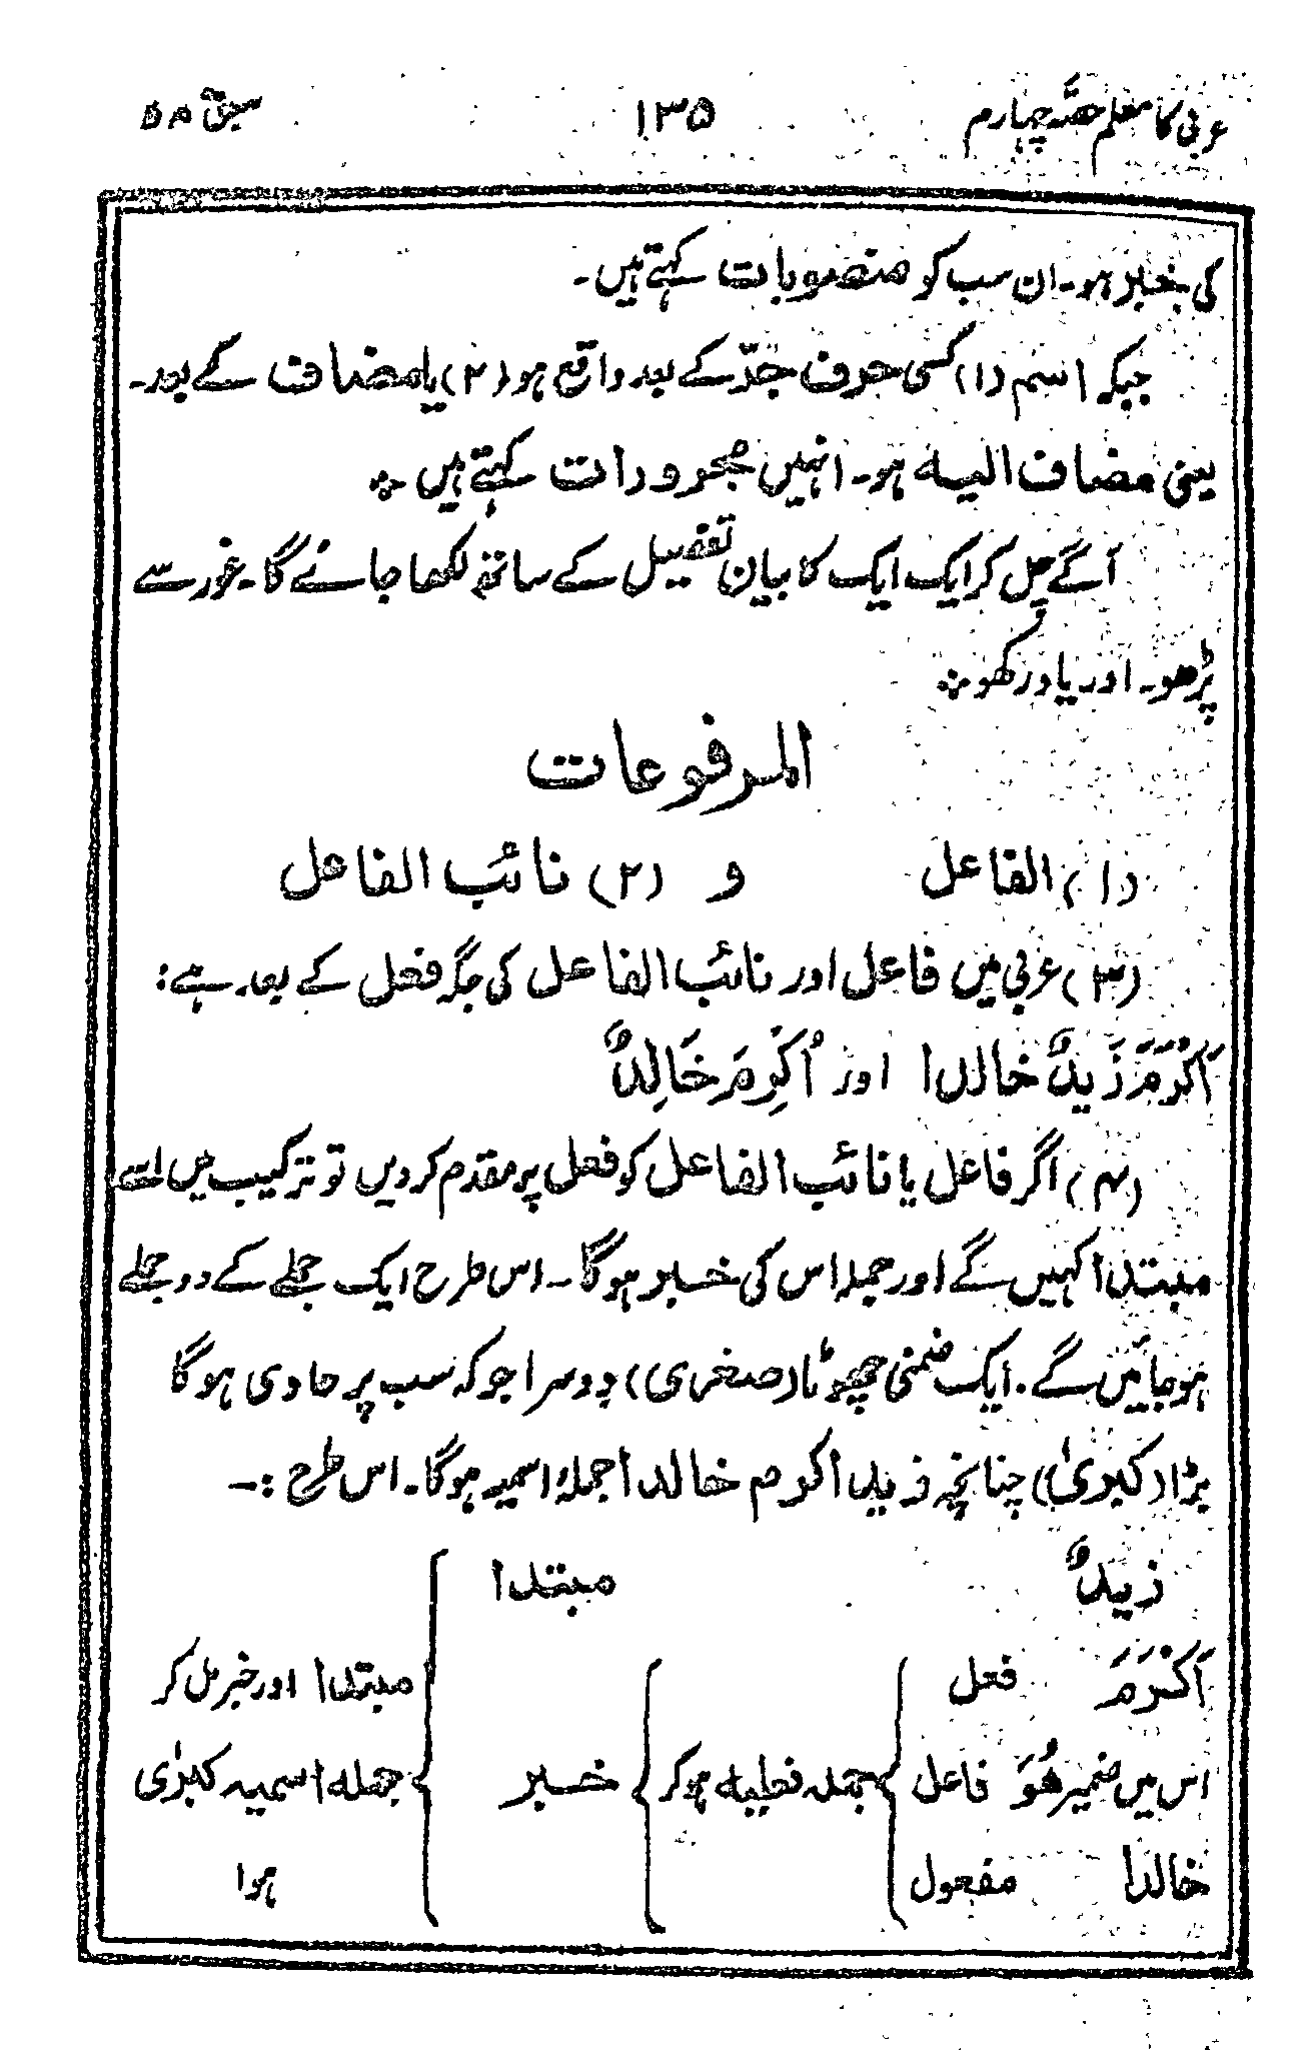 عربی کا معلم حصّہ چہارم ۱۳۵ سبق ۵۸
کی خبر ہو۔ ان سب کو منصوبات کہتے ہیں۔
جبکہ اسم (۱) کسی حرف جرّ کے بعد واقع ہو (۲) یا مضاف کے بعد۔
یعنی مضاف الیہ ہو۔ انہیں مجرورات کہتے ہیں ؞
آگے چل کر ایک ایک کا بیان تفصیل کے ساتھ لکھا جائے گا۔ غور سے
پڑھو۔ اور یاد رکھو ؞
المرفوعات
(۱) الفاعل و (۲) نائب الفاعل
(۳) عربی میں فاعل اور نائب الفاعل کی جگہ فعل کے بعد ہے:
اَکْرَمَ زَیدٌ خالدا اور اُکْرِمَ خَالِدٌ
(۴) اگر فاعل یا نائب الفاعل کو فعل پر مقدم کردیں تو ترکیب میں اسے
مبتدا کہیں گے اور جملہ اس کی خبر ہوگا۔ اس طرح ایک جملے کے دو جملے
ہوجائیں گے۔ ایک ضمنی چھوٹا (صغری) دوسرا جو کہ سب پر حاوی ہوگا
بڑا (کبریٰ) چنانچہ زید اکرم خالدا جملۂ اسمیہ ہوگا۔ اس طرح :۔
زیدٌ مبتدا
اَکْرَمَ فعل مبتدا اور خبر مل کر
اس میں ضمیر ھُوَ فاعل جملہ فعلیہ ہوکر خبر جملہ اسمیہ کبرٰی
خالدا مفعول ہوا